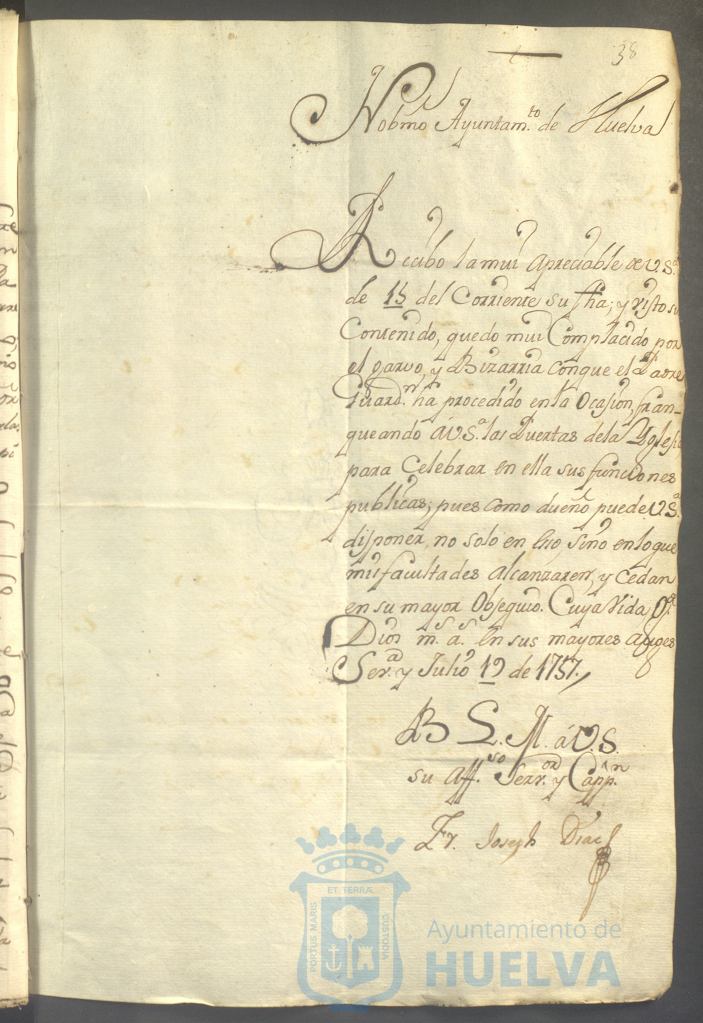 38
Nobmo Ayuntam.to de Huelva
Recibo la mui apreciable de V.S.a
de 15 del Corriente su fha; y visto su
Contenido, quedo mui Complacido por
el garvo, y Bizarria conque el Padre
Guard.n ha procedido en la Ocasion, fran-
queando á V.S.a las Puertas de la Yglesia
para Celebrar en ella sus funciones
publicas; pues como dueño puede V.S.a
disponer, no solo en eso, sino en lo que
mis facultades alcanzaren, y cedan
en su mayor Obsequio. Cuya Vida G.e
Dios m.s a.s en sus mayores auges
Sev.a y Julio 19 de 1757,,
B L. M. á V.S.
su Aff.so Serv.or y Capp.n
Fr. Joseph Diaz
PORTUS MARIS
ET TERRÆ
CUSTODIA
Ayuntamiento de
HUELVA